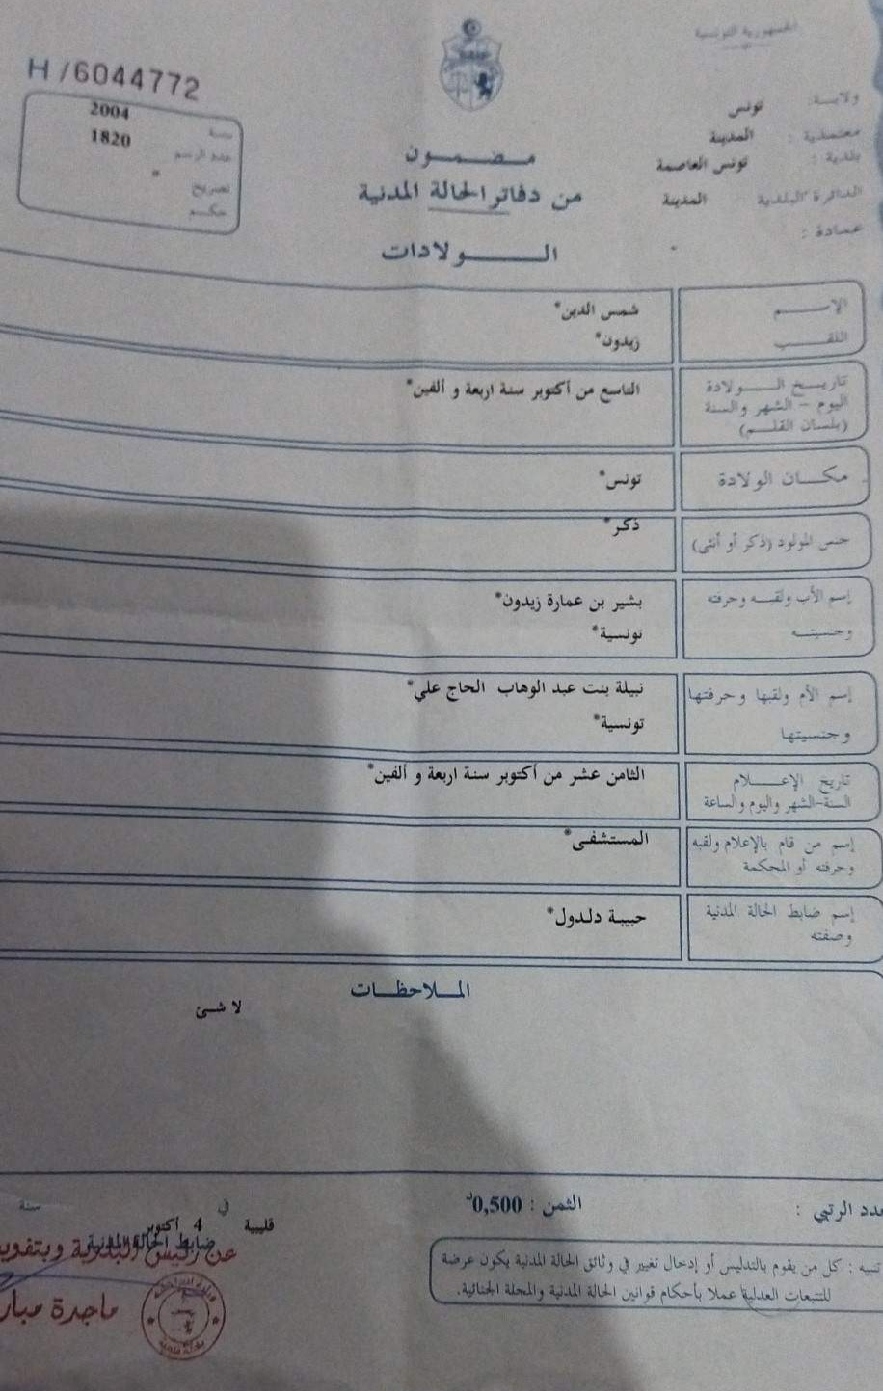 الجمهورية التونسية
H /6044772
ولاية : تونس
معتمدية : المدينة
بلدية : تونس العاصمة
الدائرة البلدية المدينة
عمادة : *
سنة 2004
عدد الرسم 1820
تصريح *
حكم
مضمون
من دفاتر الحالة المدنية
الولادات
الإسم شمس الدين*
اللقب زيدون*
تاريخ الولادة التاسع من أكتوبر سنة اربعة و ألفين*
اليوم - الشهر والسنة
(بلسان القلم)
مكان الولادة تونس*
جنس المولود (ذكر أو أنثى) ذكر*
إسم الأب ولقبه وحرفته بشير بن عمارة زيدون*
وجنسيته تونسية*
إسم الأم ولقبها وحرفتها نبيلة بنت عبد الوهاب الحاج علي*
وجنسيتها تونسية*
تاريخ الإعلام الثامن عشر من أكتوبر سنة اربعة و ألفين*
السنة-الشهر واليوم والساعة
إسم من قام بالإعلام ولقبه المستشفى*
وحرفته أو المحكمة
إسم ضابط الحالة المدنية حبيبة دلدول*
وصفته
الملاحظات
لا شئ
عدد الرتبي :
الثمن : 0,500د
قليبية في 4 أكتوبر سنة
ضابط الحالة المدنية
عن رئيس البلدية وبتفويض
ماجدة
تنبيه : كل من يقوم بالتدليس أو إدخال تغيير في وثائق الحالة المدنية يكون عرضة
للتتبعات العدلية عملا بأحكام قوانين الحالة المدنية والمجلة الجنائية.